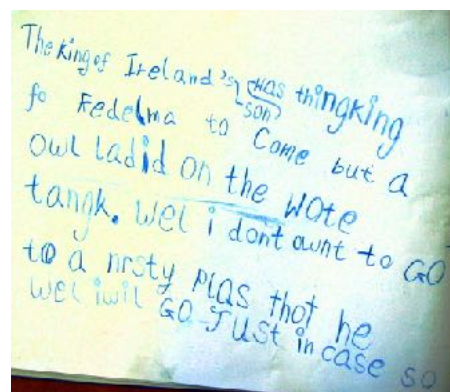 The King of Ireland's son was thingking
fo Fedelma to Come but a
owl ladid on the wote
tangk. Wel i dont ownt to GO
to a nrsty plas thot he
wel i wil GO JUST in case so